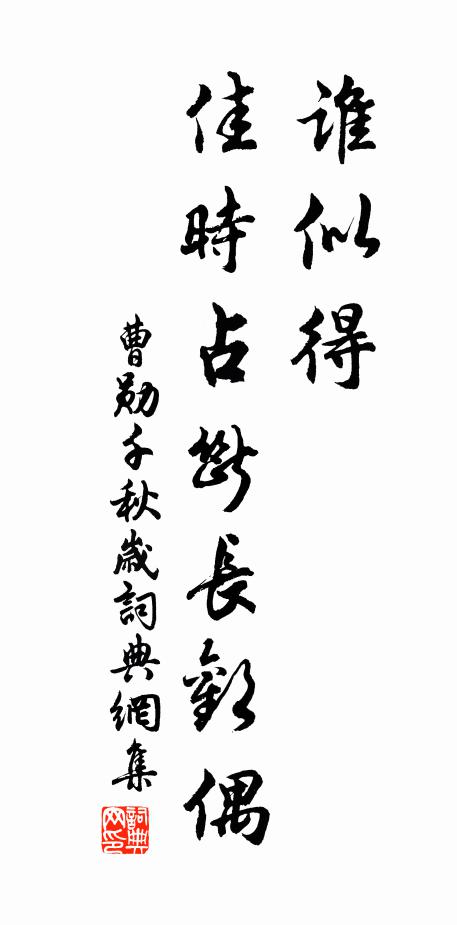 誰似得
佳時占斷長歡偶
曹勛千秋歲詞典網集
詞典网印